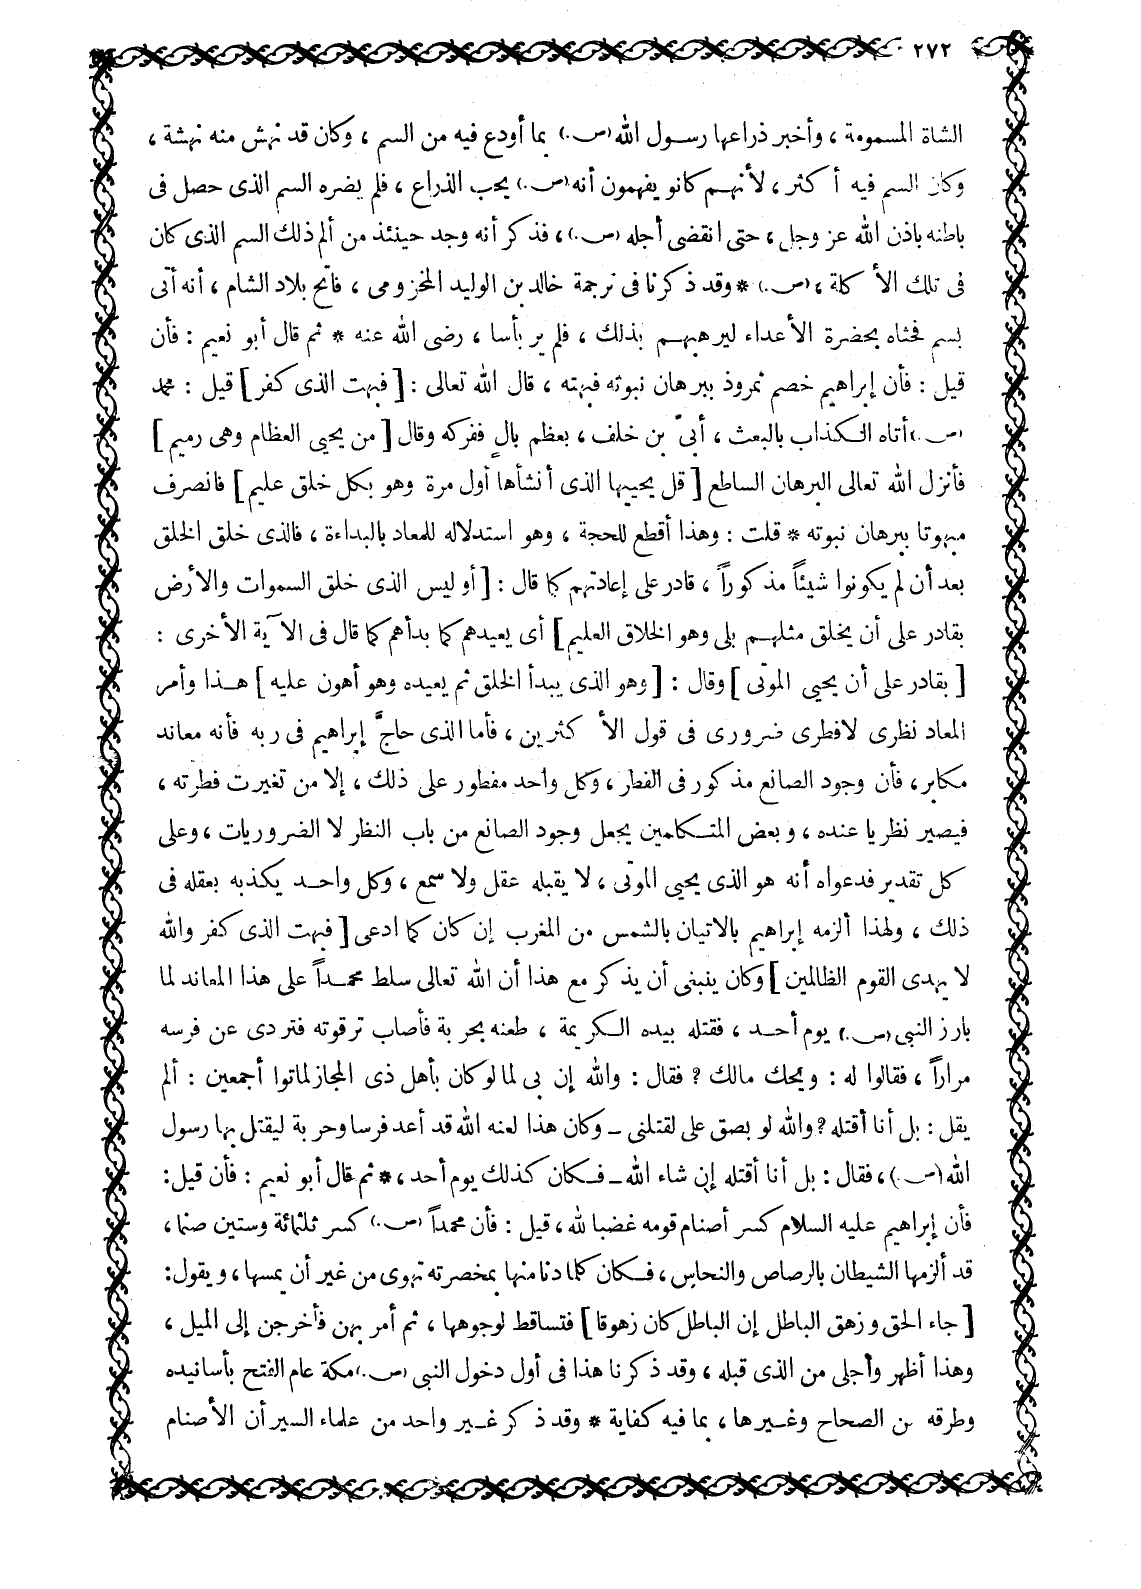 ٢٧٢
الشاة المسمومة ، وأخبر ذراعها رسول الله (ص.) بما أودع فيه من السم ، وكان قد نهش منه نهشة ،
وكان السم فيه أكثر ، لأنهم كانو يفهمون أنه (ص.) يحب الذراع ، فلم يضره السم الذى حصل فى
باطنه باذن الله عز وجل ، حتى انقضى أجله (ص.) ، فذكر أنه وجد حينئذ من ألم ذلك السم الذى كان
فى تلك الأكلة ، (ص.) * وقد ذكرنا فى ترجمة خالد بن الوليد المخزومى ، فاتح بلاد الشام ، أنه أتى
بسم فحثاه بحضرة الأعداء ليرهبهم بذلك ، فلم ير بأسا ، رضى الله عنه * ثم قال أبو نعيم : فأن
قيل : فأن إبراهيم خصم نمروذ ببرهان نبوته فبهته ، قال الله تعالى : [ فبهت الذى كفر ] قيل : محمد
(ص.) أتاه الكذاب بالبعث ، أبىّ بن خلف ، بعظم بالٍ ففركه وقال [ من يحيى العظام وهى رميم ]
فأنزل الله تعالى البرهان الساطع [ قل يحييها الذى أنشأها أول مرة وهو بكل خلق عليم ] فانصرف
مبهوتا ببرهان نبوته * قلت : وهذا أقطع للحجة ، وهو استدلاله للمعاد بالبداءة ، فالذى خلق الخلق
بعد أن لم يكونوا شيئاً مذكوراً ، قادر على إعادتهم كما قال : [ أو ليس الذى خلق السموات والأرض
بقادر على أن يخلق مثلهم بلى وهو الخلاق العليم ] أى يعيدهم كما بدأهم كما قال فى الآية الأخرى :
[ بقادر على أن يحيى الموتى ] وقال : [ وهو الذى يبدأ الخلق ثم يعيده وهو أهون عليه ] هذا وأمر
المعاد نظرى لا فطرى ضرورى فى قول الأكثرين ، فأما الذى حاجَّ إبراهيم فى ربه فأنه معاند
مكابر ، فأن وجود الصانع مذكور فى الفطر ، وكل واحد مفطور على ذلك ، إلا من تغيرت فطرته ،
فيصير نظريا عنده ، وبعض المتكلمين يجعل وجود الصانع من باب النظر لا الضروريات ، وعلى
كل تقدير فدعواه أنه هو الذى يحيى الموتى ، لا يقبله عقل ولا سمع ، وكل واحد يكذبه بعقله فى
ذلك ، ولهذا ألزمه إبراهيم بالاتيان بالشمس من المغرب إن كان كما ادعى [ فبهت الذى كفر والله
لا يهدى القوم الظالمين ] وكان ينبغى أن يذكر مع هذا أن الله تعالى سلط محمداً على هذا المعاند لما
بارز النبى (ص.) يوم أحد ، فقتله بيده الكريمة ، طعنه بحربة فأصاب ترقوته فتردى عن فرسه
مراراً ، فقالوا له : ويحك مالك ? فقال : والله إن بى لما لو كان بأهل ذى المجاز لماتوا أجمعين : ألم
يقل : بل أنا أقتله ? والله لو بصق على لقتلنى ـ وكان هذا لعنه الله قد أعد فرسا وحربة ليقتل بها رسول
الله (ص.) ، فقال : بل أنا أقتله إن شاء الله ـ فكان كذلك يوم أحد ، * ثم قال أبو نعيم : فأن قيل :
فأن إبراهيم عليه السلام كسر أصنام قومه غضبا لله ، قيل : فأن محمداً (ص.) كسر ثلثمائة وستين صنما ،
قد ألزمها الشيطان بالرصاص والنحاس ، فكان كلما دنا منها بمخصرته تهوى من غير أن يمسها ، ويقول :
[ جاء الحق وزهق الباطل إن الباطل كان زهوقا ] فتساقط لوجوهها ، ثم أمر بهن فأخرجن إلى الميل ،
وهذا أظهر وأجلى من الذى قبله ، وقد ذكرنا هذا فى أول دخول النبى (ص.) مكة عام الفتح بأسانيده
وطرقه من الصحاح وغيرها ، بما فيه كفاية * وقد ذكر غير واحد من علماء السير أن الأصنام